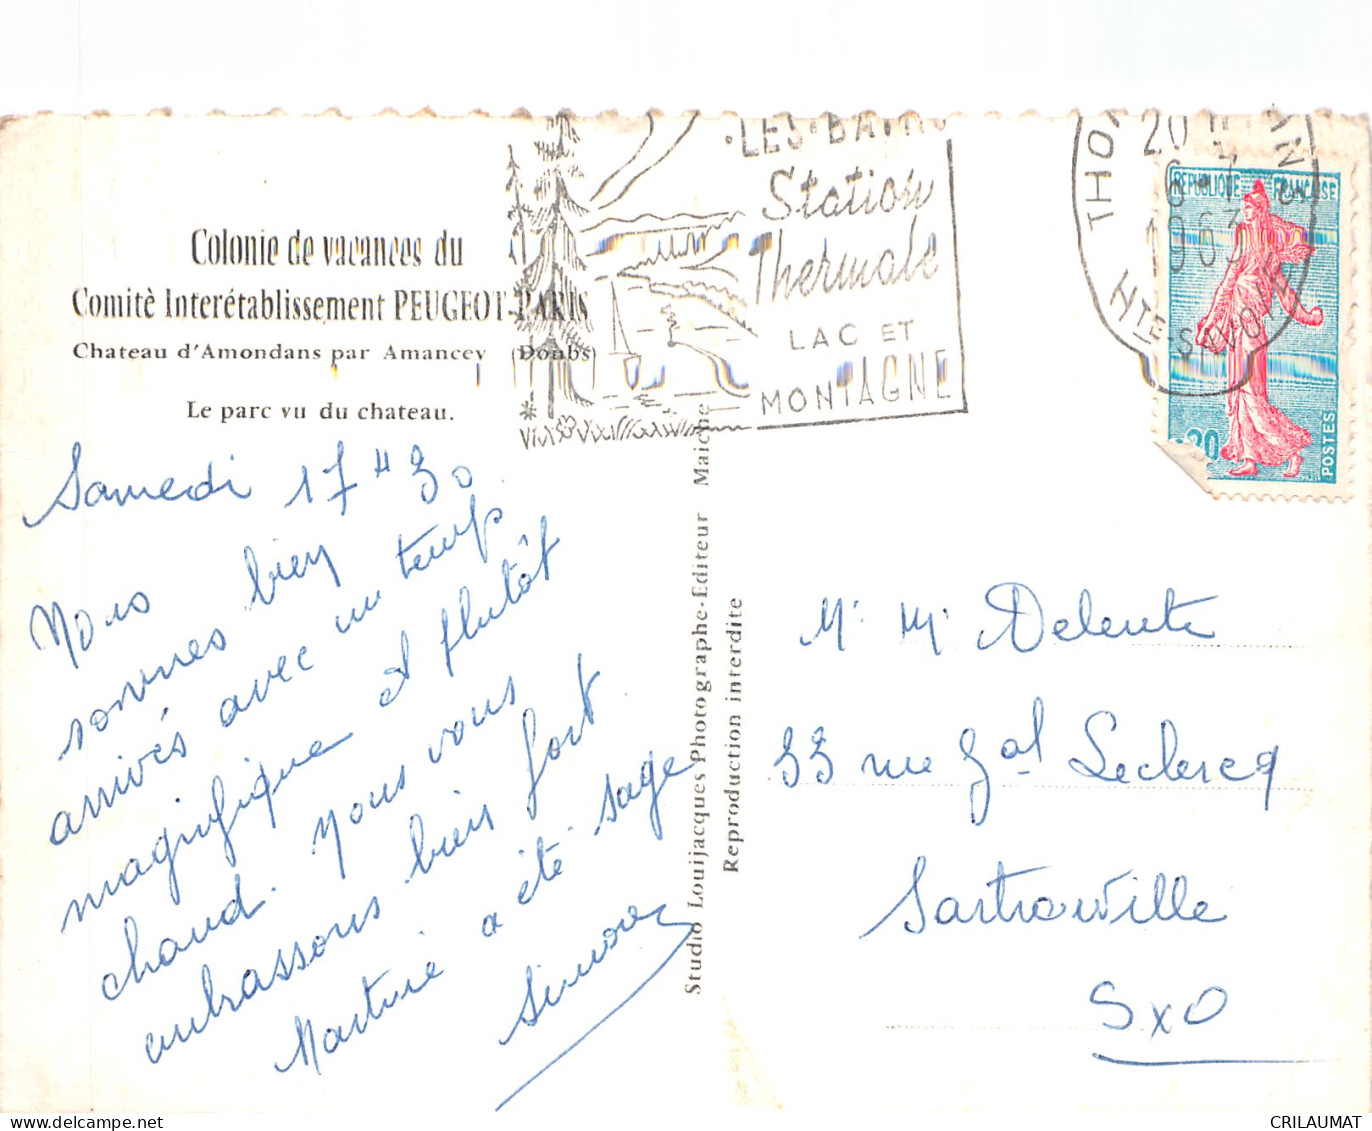 Colonie de vacances du
Comitè Interétablissement PEUGEOT-PARIS
Chateau d'Amondans par Amancey (Doubs)
Le parc vu du chateau.
Samedi 17 H 30
Nous bien
sommes
arrivés avec un temps
magnifique et plutôt
chaud. Nous vous
embrassons bien fort
Martine a été sage
Simone
Studio Louijacques Photographe-Editeur Maiche
Reproduction interdite
LES-BAINS
Station
Thermale
LAC ET
MONTAGNE
20 H
6 - 7
1963
HTE-SAVOIE
REPUBLIQUE FRANÇAISE
0,20
POSTES
Mr Me Delente
33 rue Gal Leclercq
Sartrouville
SxO
CRILAUMAT